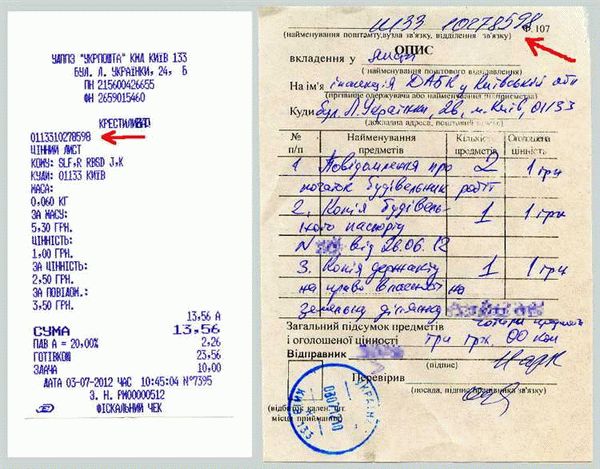 УДППЗ "УКРПОШТА" КИД КИЇВ 133
БУЛ. Л. УКРАЇНКИ, 24, Б
ПН 215600426655
ФН 2659015460
0113310278598
ЦІННИЙ ЛИСТ
КОМУ: SLF,R RBSD J,K
КУДИ: 01133 КИЇВ
МАСА:
0,060 КГ
ЗА МАСУ:
5,30 ГРН.
ЦІННІСТЬ:
1,00 ГРН.
ЗА ЦІННІСТЬ:
2,50 ГРН.
ЗА ПОВІДОМ.:
3,50 ГРН.
13,56 А
СУМА 13,56
ПДВ А = 20,00% 2,26
ГОТІВКОЮ 23,56
ЗДАЧА 10,00
ДАТА 03-07-2012 ЧАС 10:45:04 N°7395
З. Н. РМ00000512
ФІСКАЛЬНИЙ ЧЕК
0133 10278598 Ф. 107
(найменування поштамту, вузла зв'язку, відділення зв'язку)
ОПИС
вкладення у лист
(найменування поштового відправлення)
На ім'я інспекція ДАБК у Київській обл
Куди бул. Л. Українки, 26, м. Київ, 01133
(докладна адреса, поштовий індекс)
№ п/п Найменування предметів Кількість предметів Оголошена цінність
1 Повідомлення про 2 1 грн
початок будівельних робіт
2. Копія будівель- 1 1 грн
ного паспорту
N від 28.06.12
3. Копія держакту 1 1 грн
на право власності на
земельну ділянку
Загальний підсумок предметів чотири предмети
і оголошеної цінності три грн, 00 коп
Відправник
(підпис)
Перевірив
(посада, підпис працівника зв'язку)
(відбиток кален. шт.
місця приймання)